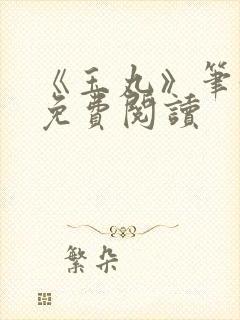 《玉丸》筆
免費閱讀
繁朵